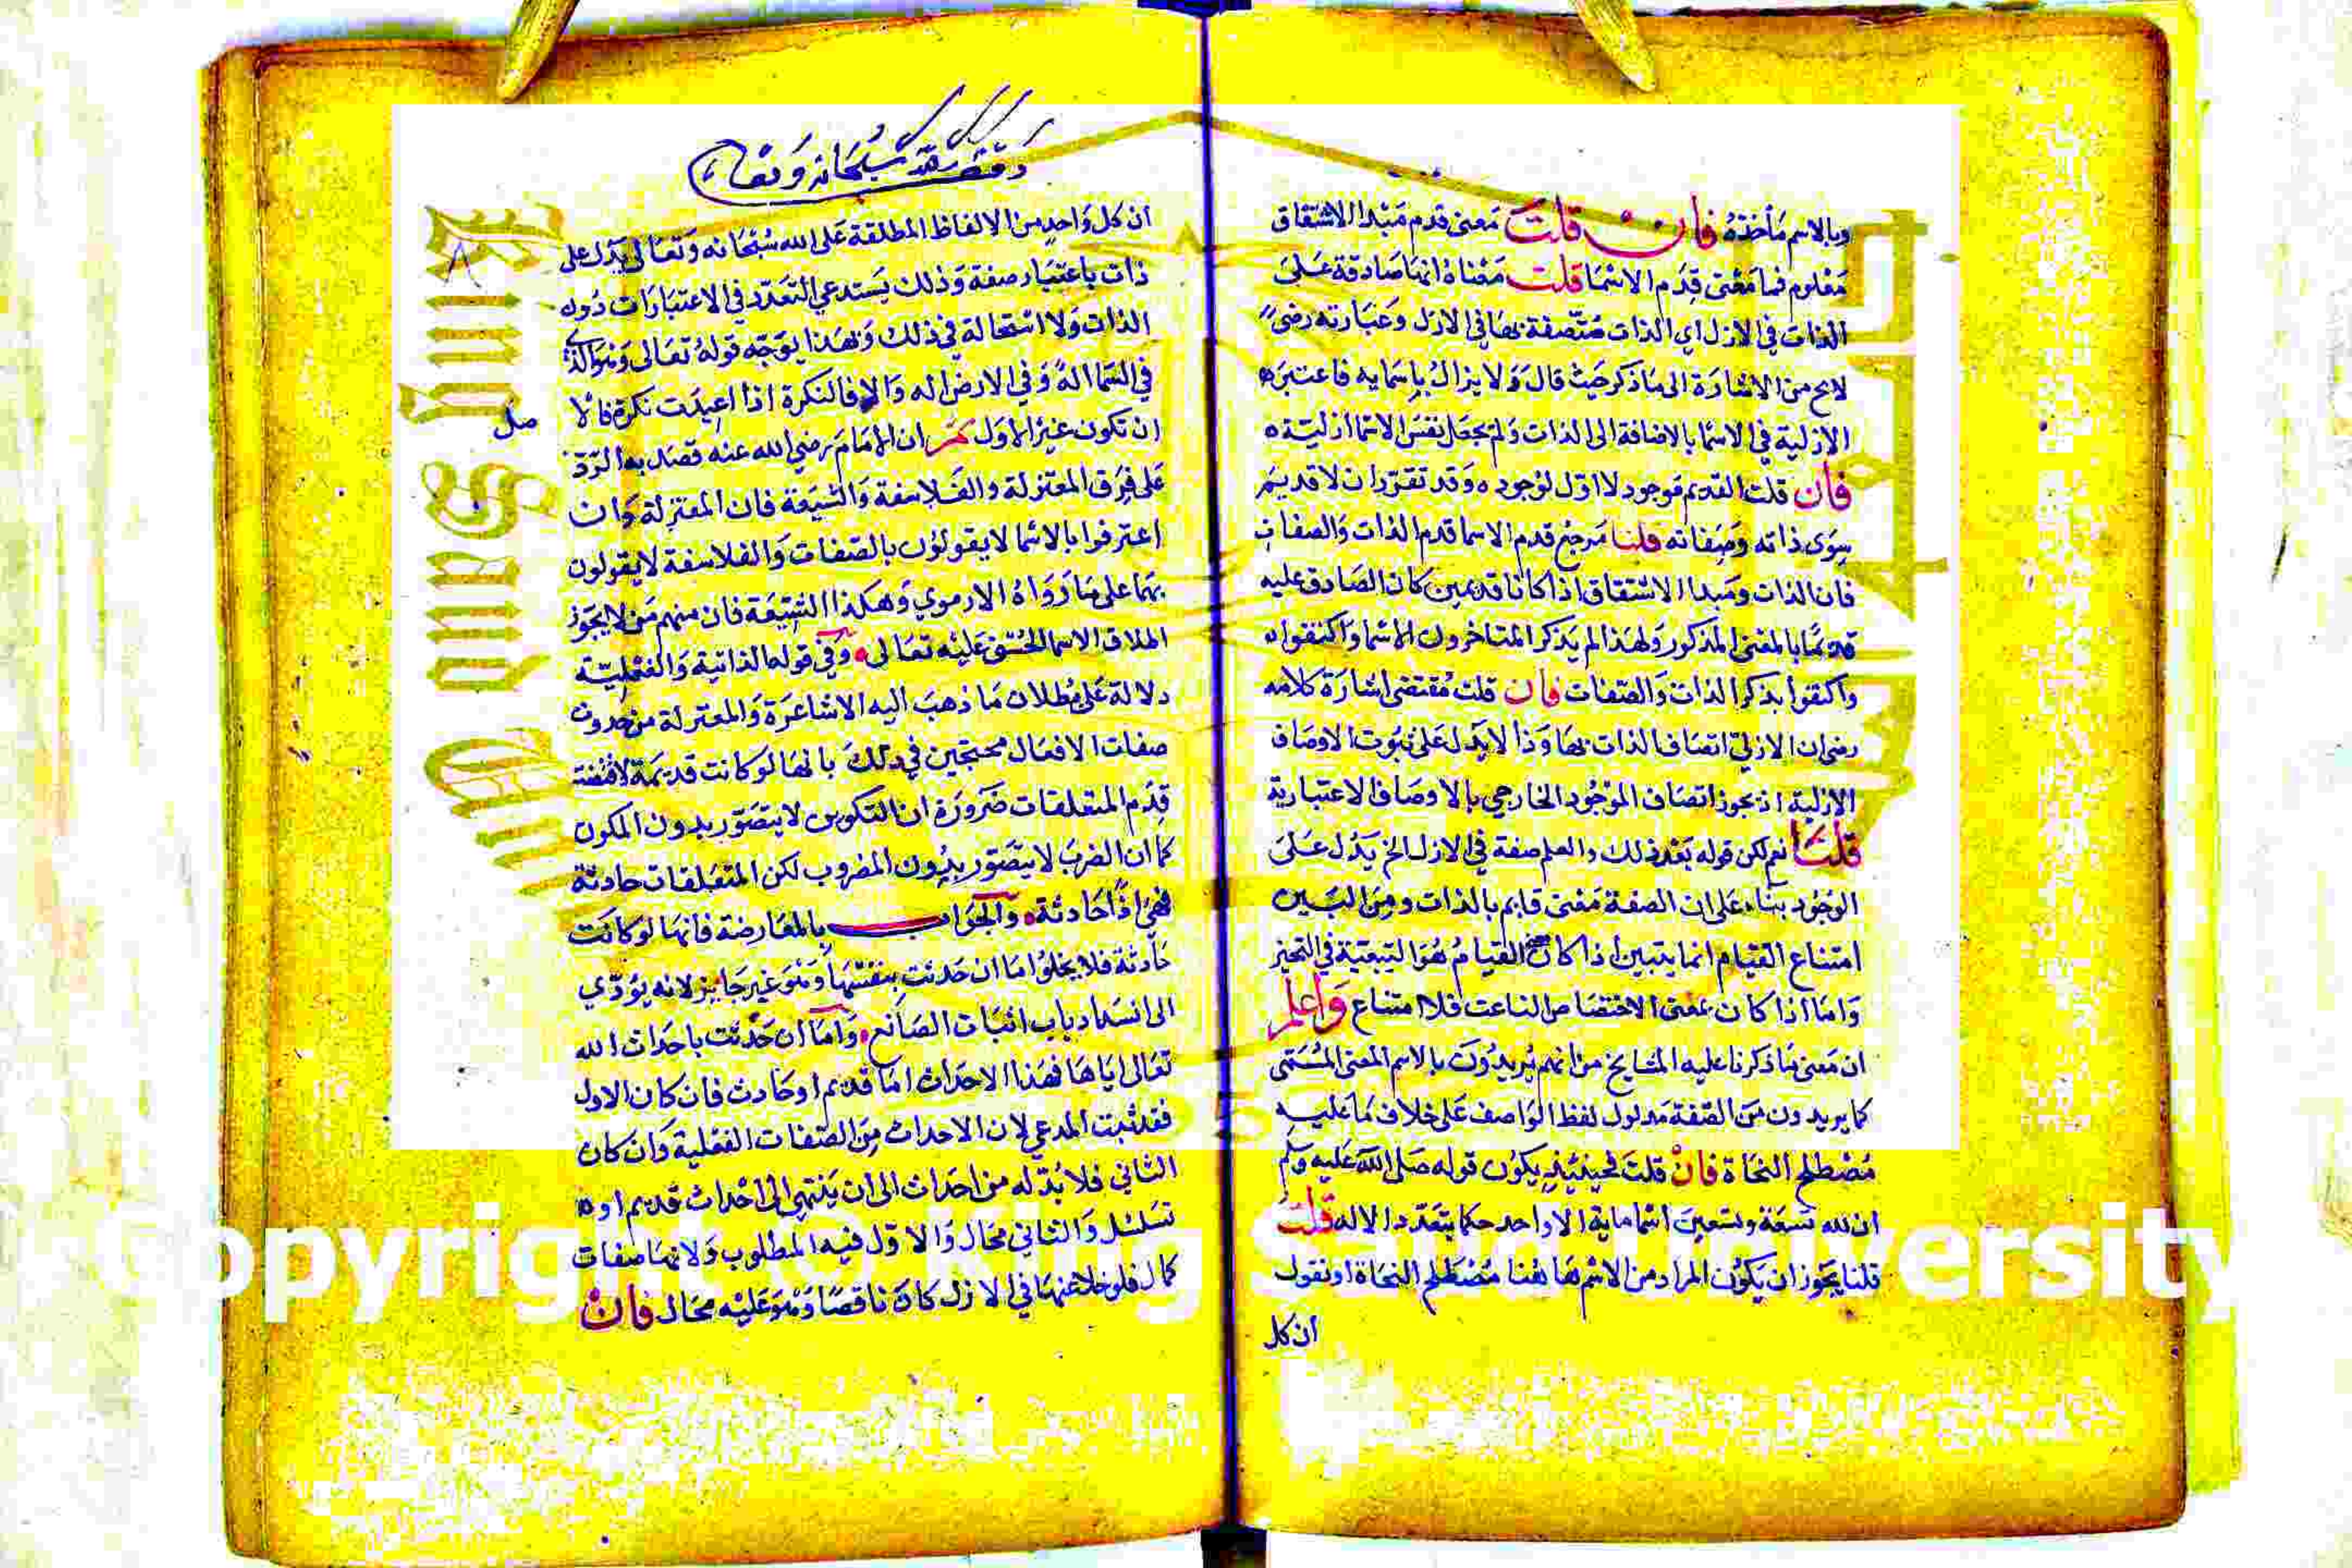 وبالاسم مأخذه فان قلت معنى قدم مبدا الاشتقاق
معلوم فما معنى قدم الاسما قلت معناه انها صادقة على
الذات في الازل اي الذات متصفة بها في الازل وعبارته رضى
لايح من الاشارة الى ما ذكر حيث قال ولا يزال باسمايه فاعتبره
الازلية في الاسما بالاضافة الى الذات ولم يجعل نفس الاسما ازليته
فان قلت القديم موجود لا اول لوجوده وقد تقرر ان لا قديم
سوى ذاته وصفاته قلنا مرجع قدم الاسما قدم الذات والصفات
فان الذات ومبدا الاشتقاق اذا كانا قديمين كان الصادق عليه
قديما بالمعنى المذكور ولهذا لم يذكر المتاخرون الاسما واكتفوا
واكتفوا بذكر الذات والصفات فان قلت مقتضى اشارة كلامه
رضى ان الازلي اتصاف الذات بها وذا لا يدل على ثبوت الاوصاف
الازلية اذ يجوز اتصاف الموجود الخارجي بالاوصاف الاعتبارية
قلنا نعم لكن قوله بعد ذلك والعلم صفة في الازل الخ يدل على
الوجود بناء على ان الصفة معنى قايم بالذات ومن البين
امتناع القيام انما يتبين اذا كان القيام هو التبعية في التحيز
واما اذا كان بمعنى الاختصاص الناعت فلا امتناع واعلم
ان معنى ما ذكرنا عليه المشايخ من انهم يريدون بالاسم المعنى المسمى
كما يريدون من الصفة مدلول لفظ الواصف على خلاف ما عليه
مصطلح النحاة فان قلت فحينئيذ يكون قوله صلى الله عليه وسلم
ان لله تسعة وتسعين اسما ماية الا واحد حكما بتعدد الاله قلت
قلنا يجوز ان يكون المراد من الاسم هاهنا مصطلح النحاة او نقول
ان كل
وقف لله سبحانه وتعالى
ان كل واحد من الالفاظ المطلقة على الله سبحانه وتعالى يدل على
ذات باعتبار صفة وذلك يستدعي التعدد في الاعتبارات دون
الذات ولا استحالة في ذلك وبهذا يوجه قوله تعالى وهو الذي
في السما اله وفي الارض اله والا فالنكرة اذا اعيدت نكرة فالا
ان تكون غير الاول ثم ان الامام رضي الله عنه قصد به الرد
على فرق المعتزلة والفلاسفة والشيعة فان المعتزلة وان
اعترفوا بالاسما لا يقولون بالصفات والفلاسفة لا يقولون
بهما على ما رواه الارموي وهكذا الشيعة فان منهم من لا يجوز
اطلاق الاسما الحسنى عليه تعالى وفي قوله الذاتية والفعلية
دلالة على بطلان ما ذهب اليه الاشاعرة والمعتزلة من حدوث
صفات الافعال محتجين في ذلك بانها لو كانت قديمة لاقتضت
قدم المتعلقات ضرورة ان التكوين لا يتصور بدون المكون
كما ان الضرب لا يتصور بدون المضروب لكن المتعلقات حادثة
فهي اذا حادثة والجواب بالمعارضة فانها لو كانت
حادثة فلا يخلوا اما ان حدثت بنفسها وهو غير جايز لانه يؤدي
الى انسداد باب اثبات الصانع واما ان حدثت باحداث الله
تعالى اياها فهذا الاحداث اما قديم او حادث فان كان الاول
فقد ثبت المدعي لان الاحداث من الصفات الفعلية وان كان
الثاني فلا بد له من احداث الى ان ينتهي الى احداث قديم او
تسلسل والثاني محال والاول فيه المطلوب ولانها صفات
كمال فلو خلا عنها في الازل كان ناقصا وهو عليه محال فان
Copyright © King Saud University